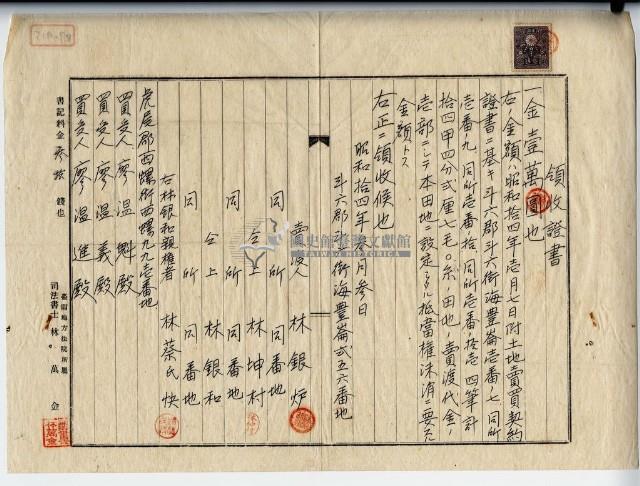 領收證書
一金壹萬圓也
右金額ハ昭和拾四年壱月七日附土地賣買契約
證書ニ基キ斗六郡斗六街海豐崙壱番ノ七同所
壱番ノ九同所壱番ノ拾同所壱番ノ拾壱四筆計
拾四甲四分弍厘七毛〇糸ノ田地賣渡代金ノ
壱部ニシテ本田地ニ設定シタル抵當權抹消ニ要スル
金額トス
右正ニ領收候也
昭和拾四年 月参日
斗六郡斗六街海豐崙弍五六番地
賣渡人 林銀炉
同所同番地
仝上 林坤村
同所同番地
仝上 林銀和
同所同番地
右林銀和親權者 林蔡氏快
虎尾郡西螺街西螺九九壱番地
買受人 廖溫魁殿
買受人 廖溫義殿
買受人 廖溫進殿
臺南地方法院所屬
司法書士 林萬金
書記料金 錢也
國史館臺灣文獻館
TAIWAN HISTORICA